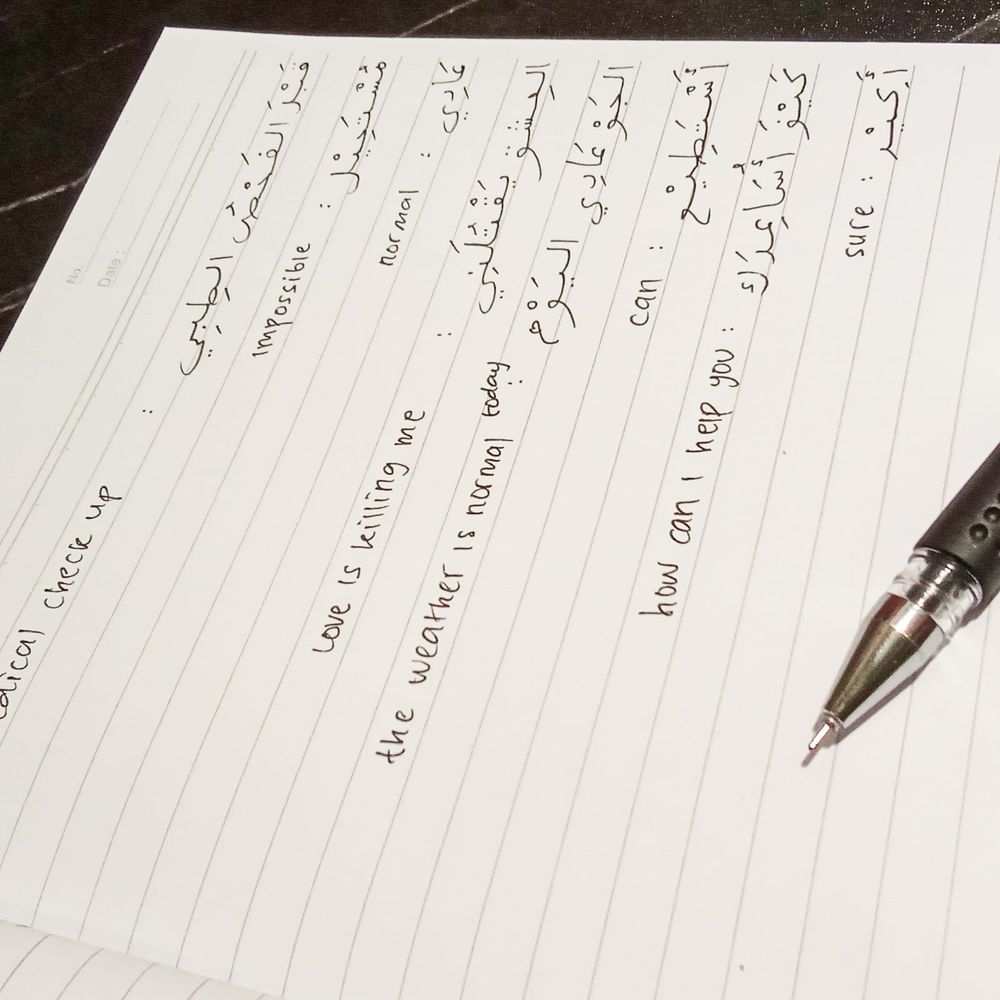 No.
Date :
medical check up : قَبْرَ الفَحْصُ الطِبِّي
impossible : مُسْتَحِيْل
normal : عَادِي
love is killing me : العِشْقُ يَقْتُلُنِي
the weather is normal today : الجَوُّ عَادِي اليَوْم
can : أَسْتَطِيْع
how can i help you : كَيْفَ أُسَاعِدُكَ
sure : أَكِيْد